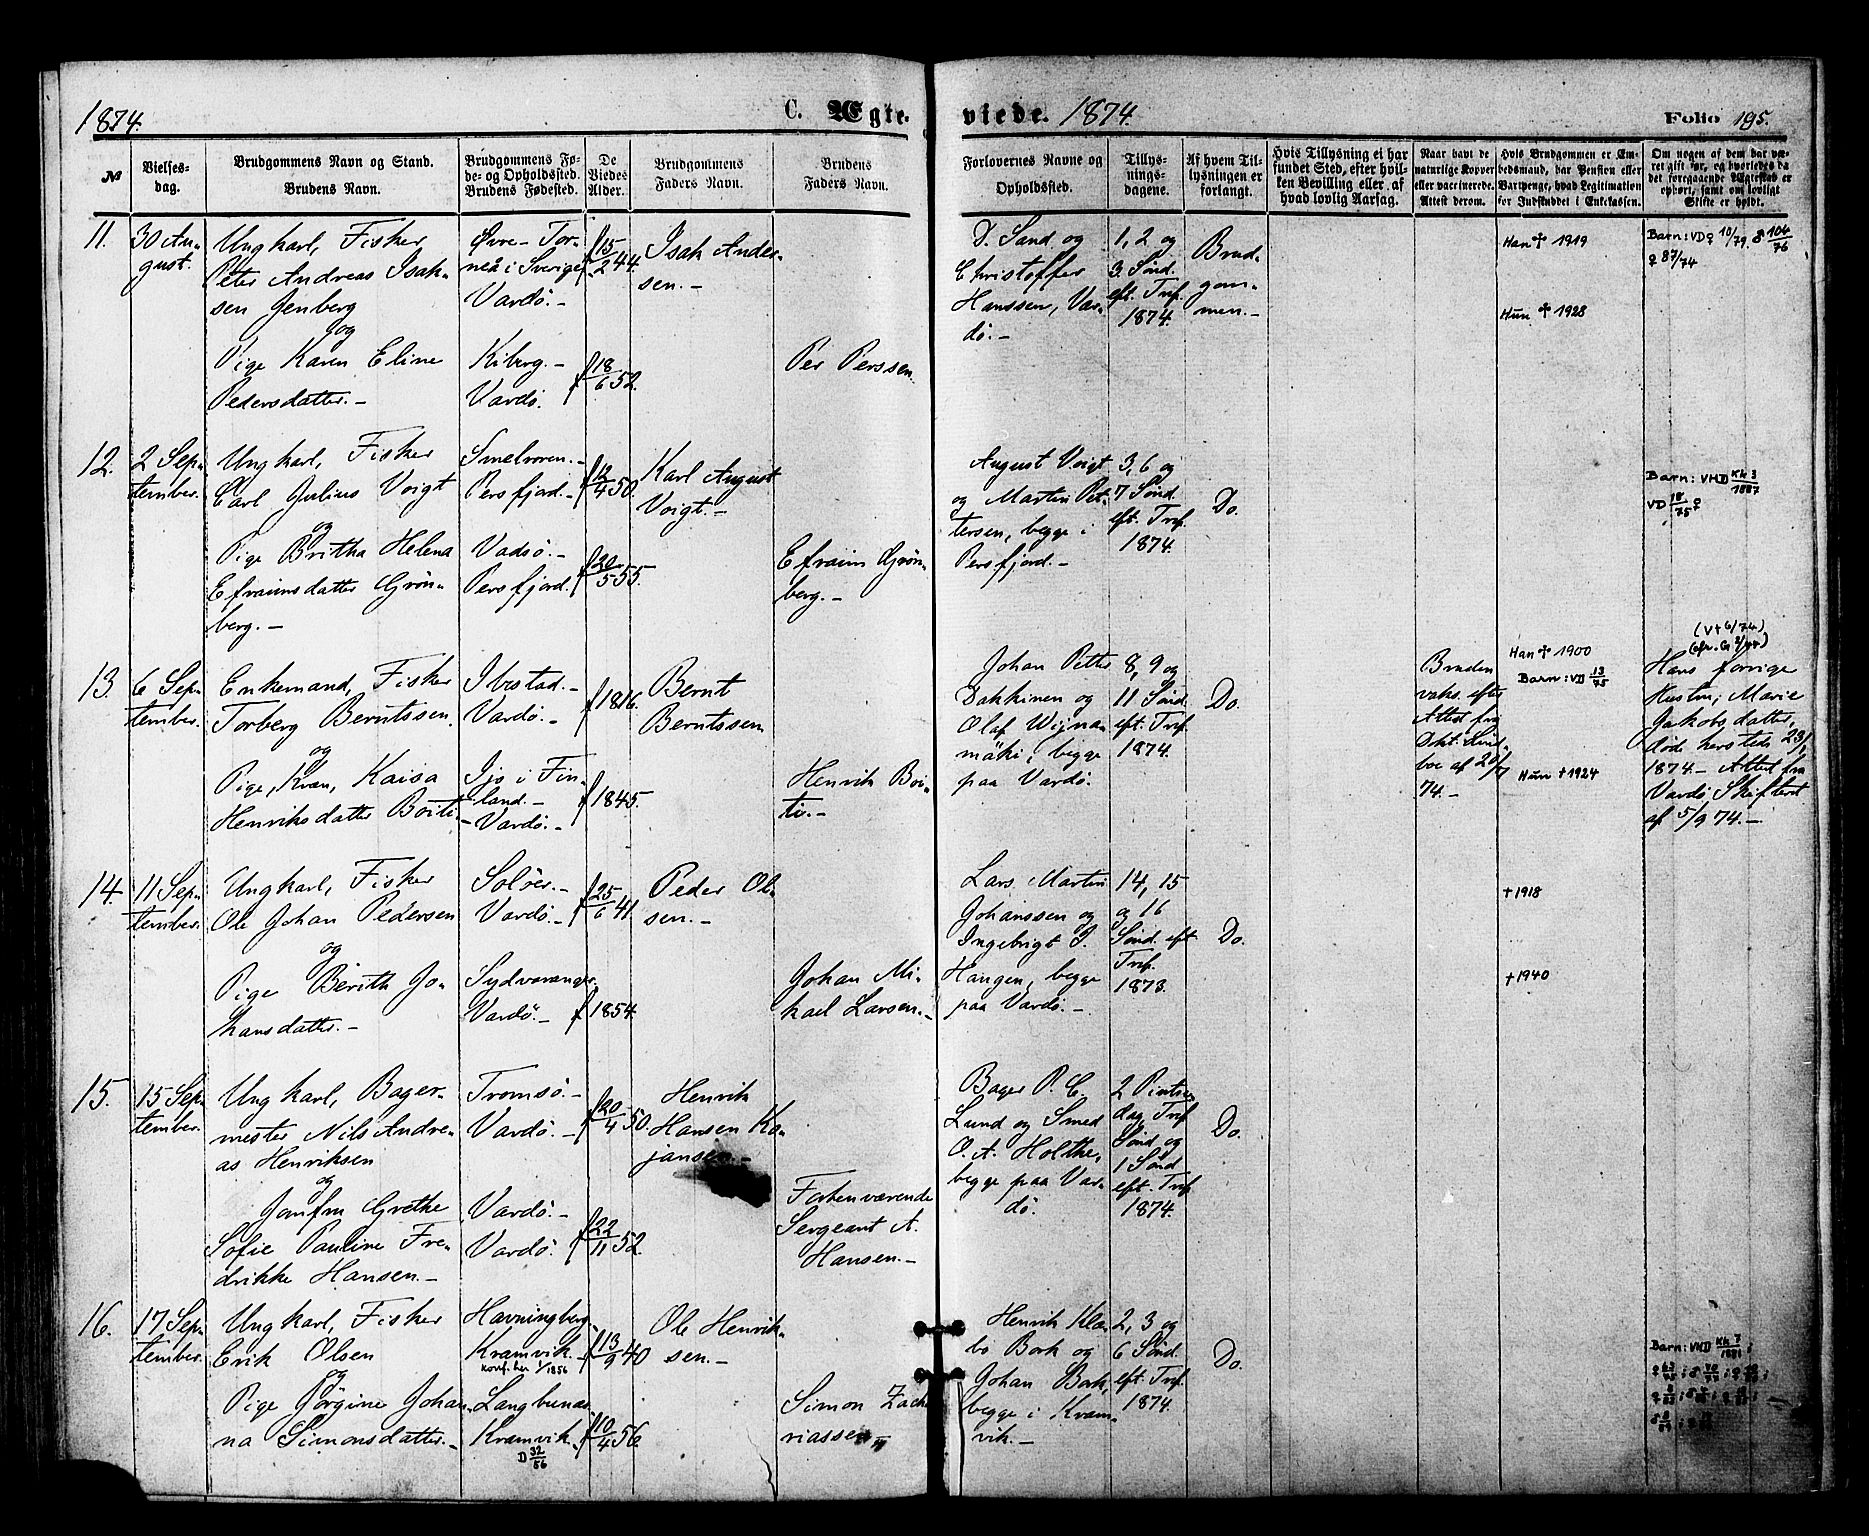 1874. C. Ægte- viede. 1874. Folio 195.
№
Vielses-
dag.
Brudgommens Navn og Stand.
Brudens Navn.
Brudgommens Fø-
de- og Opholdssted.
Brudens Fødested.
De
Viedes
Alder.
Brudgommens
Faders Navn.
Brudens
Faders Navn.
Forlovernes Navne og
Opholdssted.
Tillys-
nings-
dagene.
Af hvem Til-
lysningen er
forlangt.
Hvis Tillysning ei har
fundet Sted, efter hvil-
ken Bevilling eller af
hvad lovlig Aarsag.
Naar havt de
naturlige Kopper
eller vaccinerede.
Attest derom.
Hvis Brudgommen er Em-
bedsmand, har Pension eller
Vartpenge, hvad Legitimation
for Indskuddet i Enkekassen.
Om nogen af dem har væ-
ret gift før, og hvorledes da
det foregaaende Ægteskab er
ophørt, samt om lovligt
Skifte er holdt.
11.
30 Au-
gust.
Ungkarl, Fisker
Peter Andreas Isak-
sen Jenberg
og
Pige Karen Eline
Pedersdatter.-
Øvre-Tor-
neå i Sverige
Vardö.-
Kiberg.-
Vardö.
f 15/2 44.
f 18/6 52.
Isak Ander-
sen.-
Per Perssen.
D. Sand og
Christoffer
Hanssen, Var-
dö.-
1, 2 og
3. Sönd.
eft. Tref.
1874.
Brud-
gom-
men.-
Han ✝ 1919
Hun ✝ 1928
Barn: VD ♀ 10/79, ♂ 104/76
♀ 87/74
12.
2 Sep-
tember.
Ungkarl, Fisker
Carl Julius Voigt
og
Pige Britha Helena
Efraimsdatter Grön-
berg.-
Smelroren.-
Persfjord.-
Vadsö.-
Persfjord.
f 12/4 50.
f 20/5 55.
Karl August
Voigt.-
Efraim Grön-
berg.-
August Voigt
og Martin Pet-
tersen, begge i
Persfjord.-
3, 6 og
7 Sönd.
eft. Tref.
1874.
Do.
Barn: VHD Kh 3/1887
VD 18/75 ♀
13.
6 Sep-
tember.
Enkemand, Fisker
Torberg Berntssen
og
Pige, Kvæn, Kaisa
Henriksdatter Boiti.-
Ibestad.-
Vardö.-
Ijo i Fin-
land.-
Vardö.-
f 1816.
f 1845.
Bernt
Berntssen
Henrik Boi-
ti.-
Johan Petter
Dakkinen og
Olaf Wijna-
mäki, begge
paa Vardö.
8, 9 og
11 Sönd.
eft. Tref.
1874.
Do.
Bruden
vaks. efter
Attest fra
Dokt. Lind-
boe af 20/7
74.-
Han ✝ 1900
Barn: VD 13/75
Hun ✝ 1924
(V✝ 6/74)
Hans forrige
Hustru, Marie
Jakobsdatter,
döde hersteds 23/1
1874.- Attest fra
Vardö Skifteret
af 5/9 74.-
14.
11 Sep-
tember.
Ungkarl, Fisker
Ole Johan Pedersen
og
Pige Berith Jo-
hansdatter.-
Solöer.-
Vardö.-
Sydvaranger.
Vardö.-
f 25/6 41.
f 1854.
Peder Ol-
sen.-
Johan Mi-
kael Larsen.-
Lars Martin
Johanssen og
Ingebrigt P.
Haugen, begge
paa Vardö.-
14, 15
og 16
Sönd. eft.
Tref.
1873.
Do.
✝ 1918
✝ 1940
15.
15 Sep-
tember.
Ungkarl, Bager-
mester Nils Andre-
as Henriksen
og
Jomfru Grethe
Sofie Pauline Fre-
drikke Hansen.-
Tromsö.-
Vardö.-
Vardö.-
Vardö.
f 20/4 50.
f 22/11 52.
Henrik
Hansen Ka-
jansen.-
Forhenværende
Sergeant A.
Hansen.-
Bager P. C.
Lund og Smed
O. A. Holthe,
begge paa Var-
dö.
2 Pintse-
dag, Tref.
Sönd. og
1 Sönd.
eft. Tref.
1874.
Do.
16.
17 Sep-
tember.
Ungkarl, Fisker
Erik Olsen
og
Pige Jörgine Johan-
na Simonsdatter.-
Havningberg.
Kramvik.-
Konf. her 1/1856
Langbunæs.
Kramvik.
D 32/56
f 13/9 40
f 10/4 56.
Ole Henrik-
sen.-
Simon Zach-
riassen
Henrik Klæ-
bo Bork og
Johan Bork,
begge i Kram-
vik.-
2, 3 og
6 Sönd.
eft. Tref.
1874.
Do.
Barn: VHD Kh 7/1881;